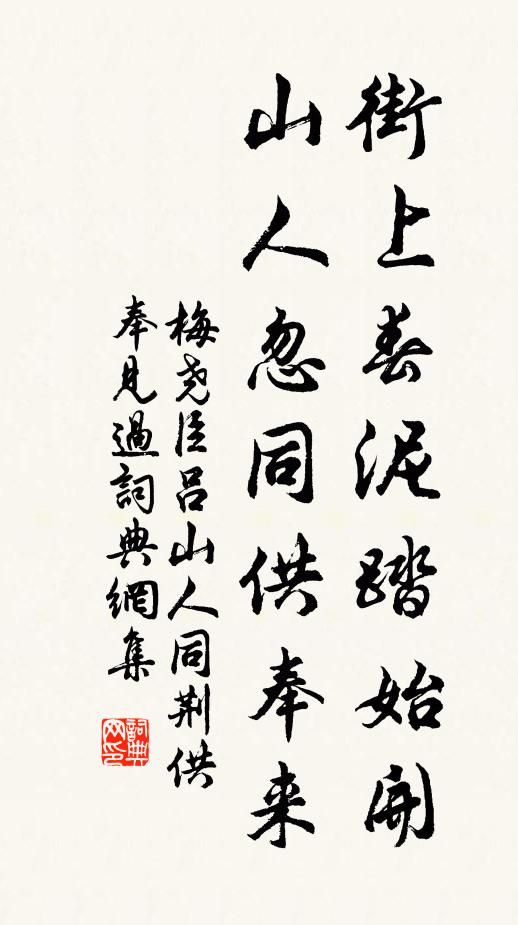 街上春泥踏始開
山人忽同供奉来
梅尧臣吕山人同荆供
奉見過詞典網集
詞典
网印